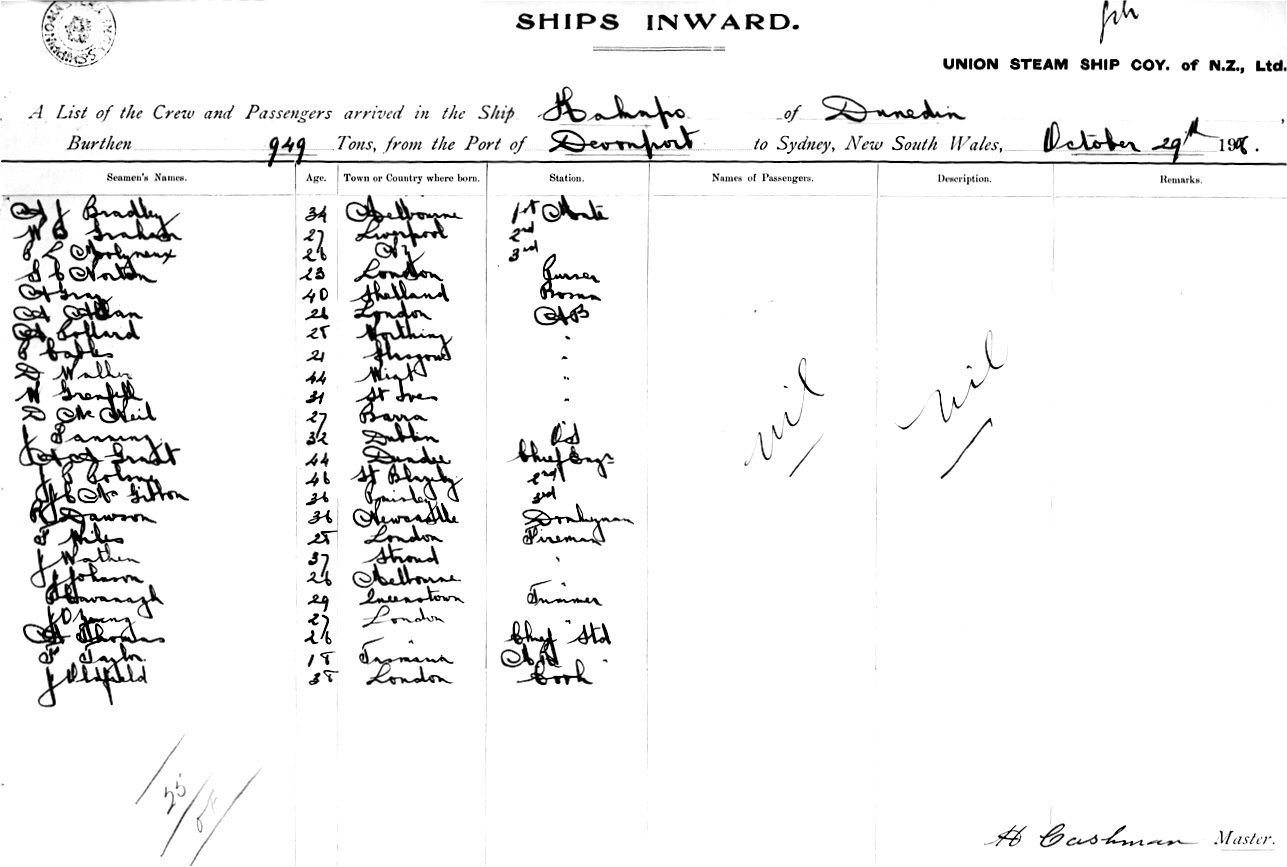 SHIPS INWARD.
UNION STEAM SHIP COY. of N.Z., Ltd.
A List of the Crew and Passengers arrived in the Ship Kakapo of Dunedin,
Burthen 949 Tons, from the Port of Devonport to Sydney, New South Wales, October 29th 1908.
Seamen's Names. Age. Town or Country where born. Station. Names of Passengers. Description. Remarks.
A J Bradley 34 Melbourne 1st Mate
W B Graham 27 Liverpool 2nd
L Molyneux 26 NZ 3rd
S C Norton 23 London Purser
A Gray 40 Shetland Bosun
A Allan 26 London AB
A Collard 25 Worthing "
Eables 21 Glasgow "
R Waller 44 "
W Grenfell 31 St Ives "
R McNeil 27 Barra
J Fanning 32 Dublin OS
A Grant 44 Dundee Chief Engr
J 46 St Blazey 2nd
J C McGibbon 36 Paisley 3rd
R Dawson 36 Newcastle Donkeyman
E Miles 25 London Fireman
J Wathen 37 Stroud "
J Johnson 26 Melbourne "
P Cavanagh 29 Queenstown Trimmer
J D Young 27 London "
A Thomas 26 " Chief Std
E Taylor 18 Tasmania "
J Oldfield 38 London Cook
nil nil
25
H Cashman Master.